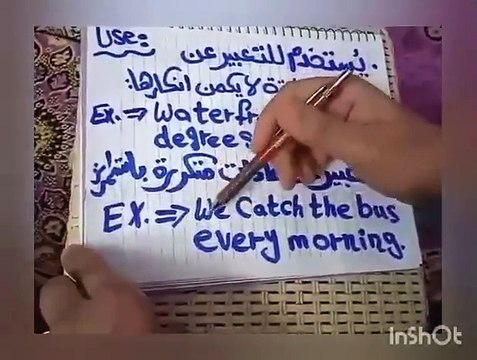 Use:
يُستخدم للتعبير عن
لا يمكن انكارها:
Ex. ⇒ Waterfr
degrees
متكررة باستمرار
EX. ⇒ We Catch the bus
every morning.
InShOt